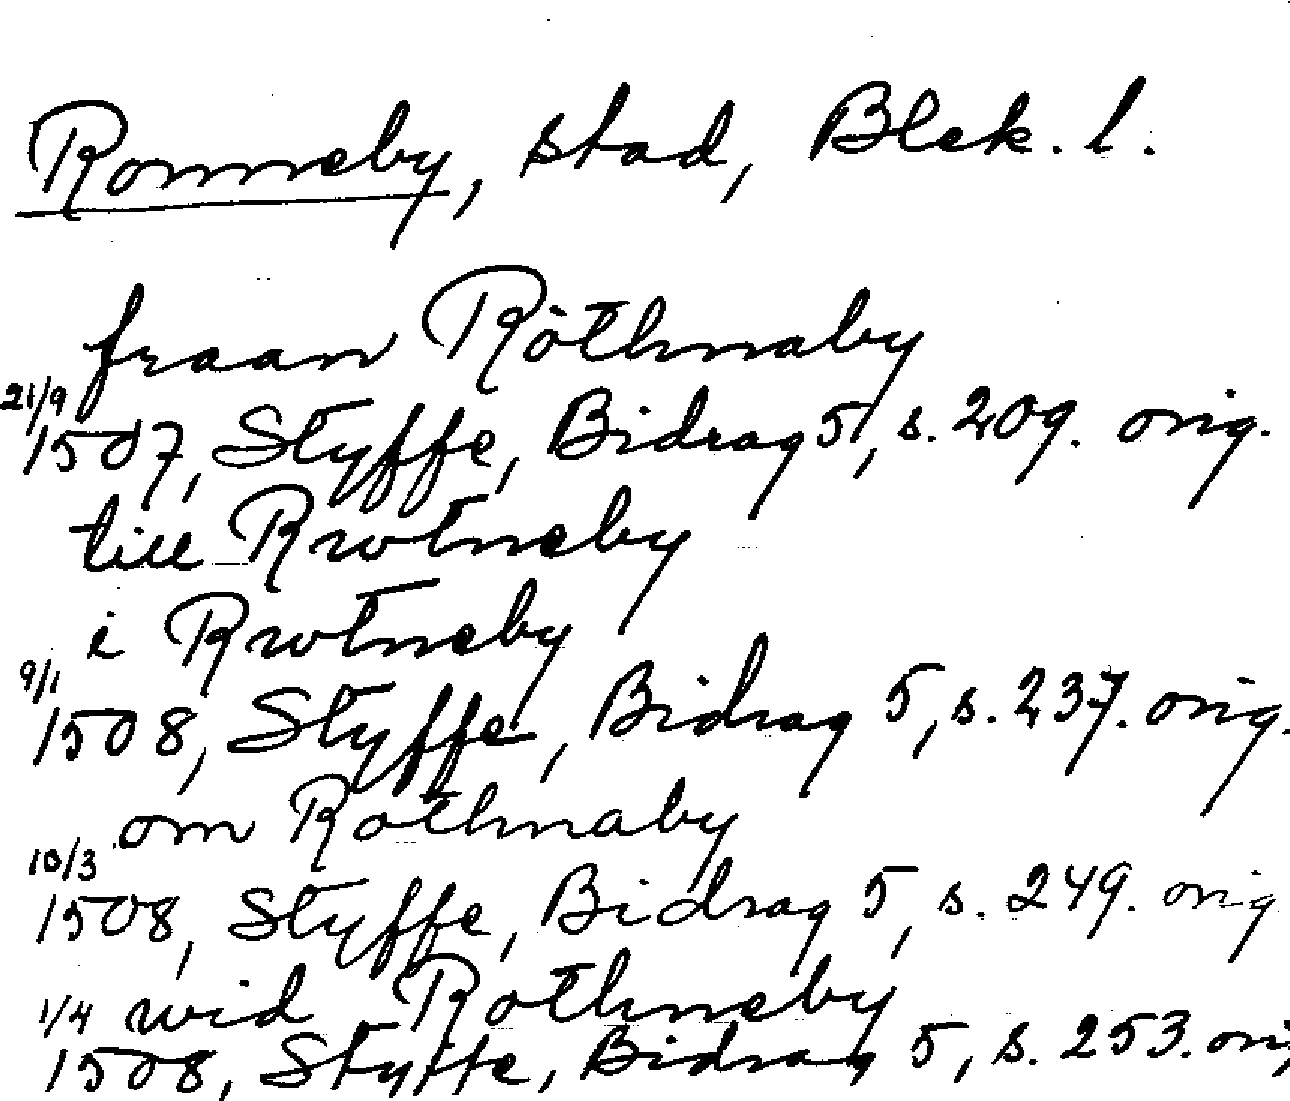 Ronneby, stad, Blek. l.
fraan Röthnaby
21/9
1507, Styffe, Bidrag 5, s. 209. orig.
till Rwtneby
i Rwtneby
9/1
1508, Styffe, Bidrag 5, s. 237. orig.
om Rothnaby
10/3
1508, Styffe, Bidrag 5, s. 249. orig
1/4 wid Rothneby
1508, Styffe, Bidrag 5, s. 253. orig